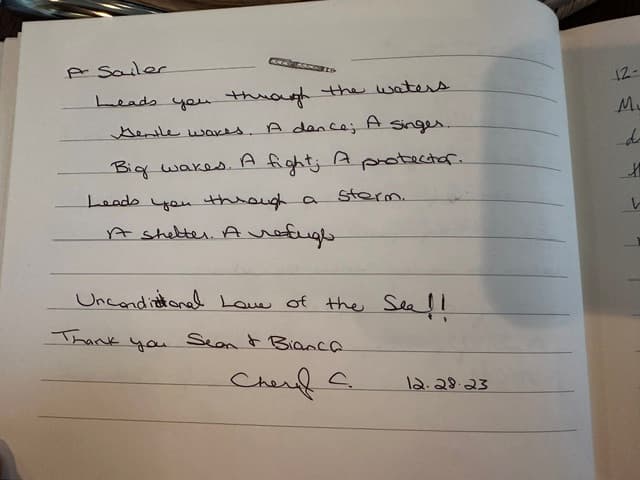 A Sailer
Leads you through the waters
Gentle waves. A dance; A singer.
Big waves. A fight; A protector.
Leads you through a storm.
A shelter. A refuge
Unconditional Love of the Sea!!
Thank you Sean & Bianca
Cheryl C. 12.28.23
12-